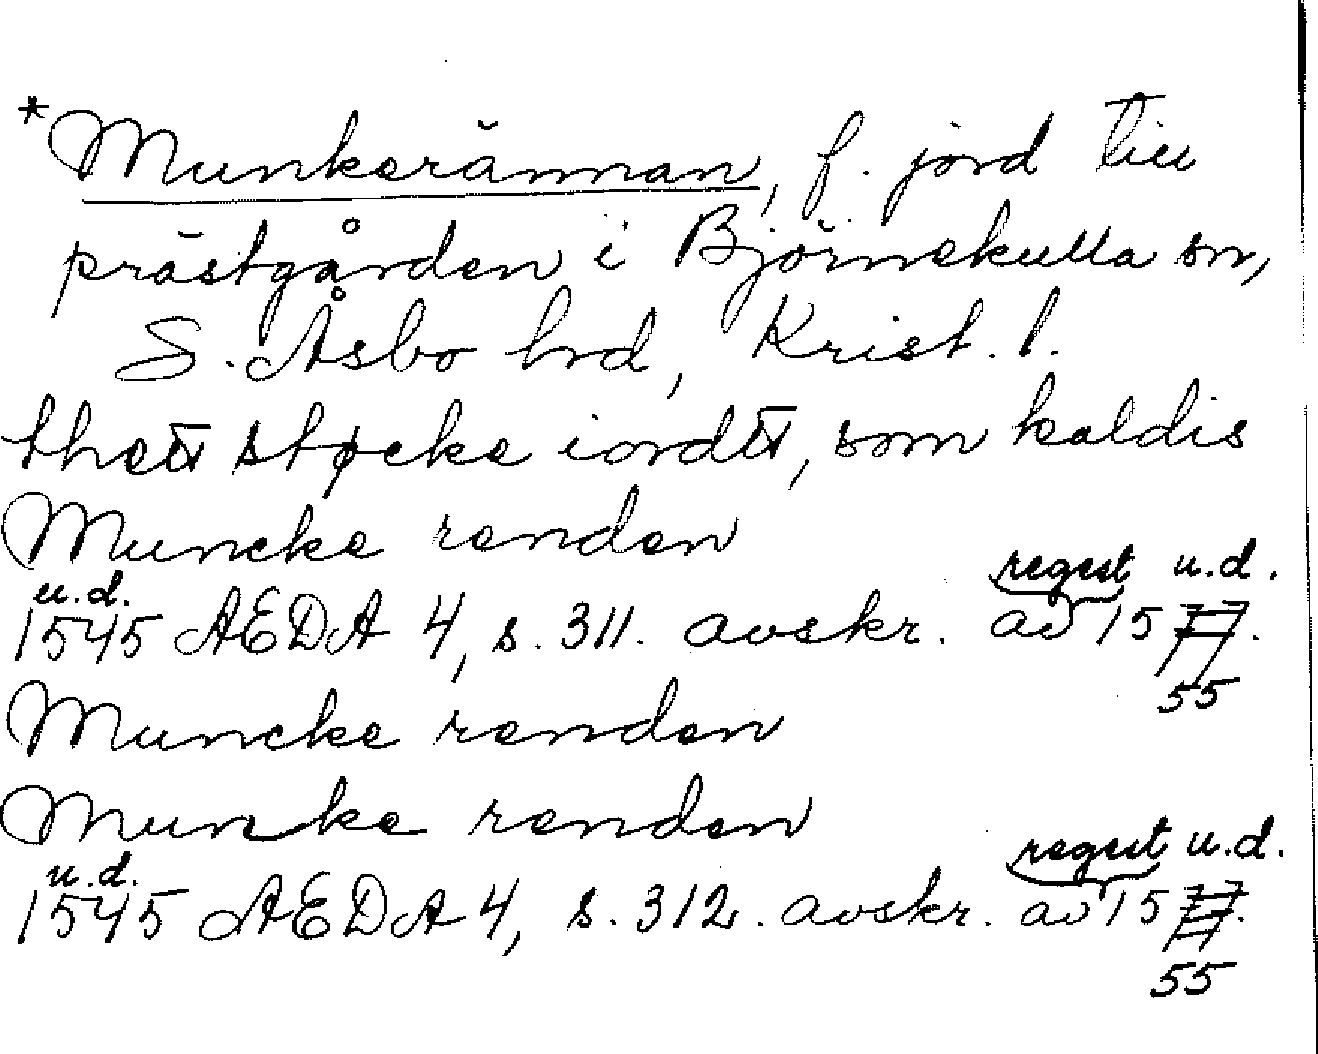 *Munkerännan, f. jord till
prästgården i Björnekulla sn,
S. Åsbo hrd, Krist. l.
thett støcke iordtt, som kaldis
Muncke renden
u.d. regest u.d.
1545 AEDA 4, s. 311. avskr. av 1577.
55
Muncke renden
Munke renden
u.d. regest u.d.
1545 AEDA 4, s. 312. avskr. av 1577.
55